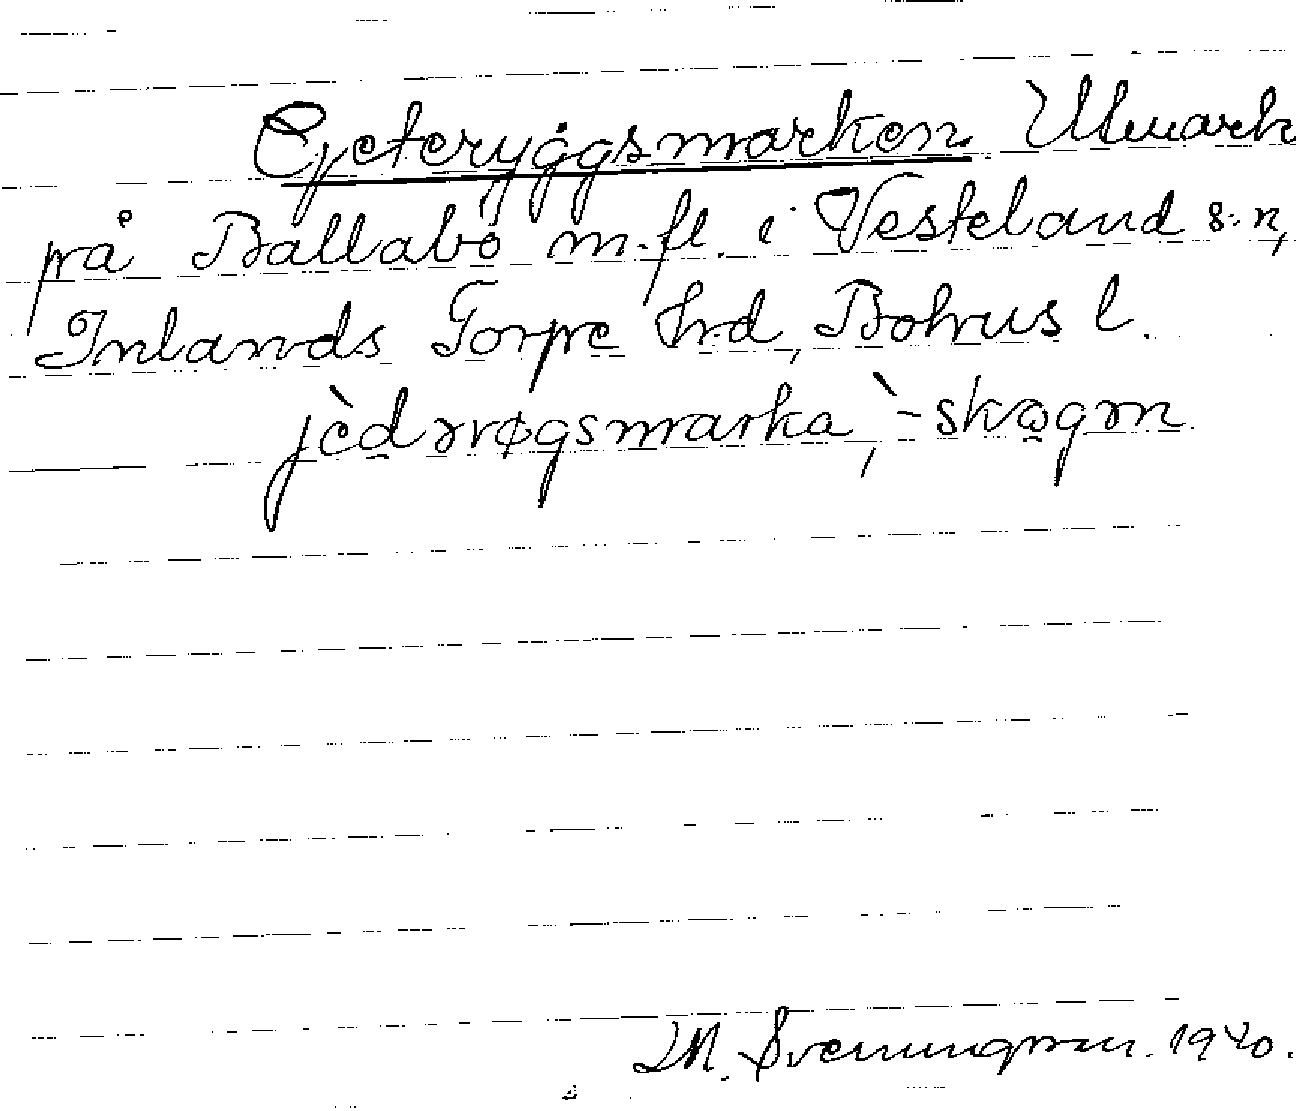 Gjeteryggsmarken. Utmark
på Ballabo m.fl. i Vesterland s:n,
Inlands Torpe hd, Bohus l.
jèdərvøgsmarka, `-skogən
M. Svenungsson. 1940.